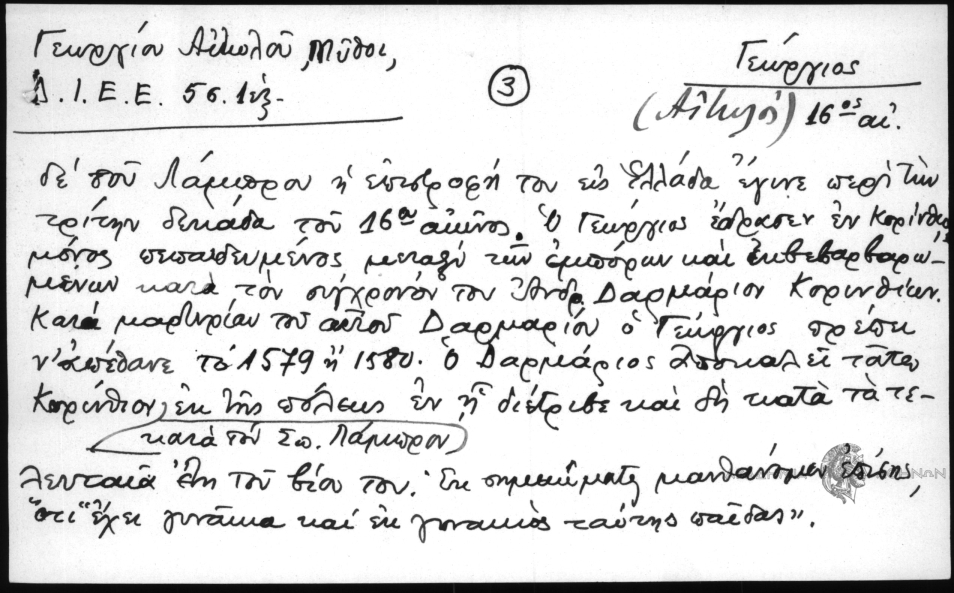 Γεωργίου Αἰτωλοῦ, Μῦθοι,
Δ.Ι.Ε.Ε. 56. 1εξ-
③
Γεώργιος
(Αἰτωλός) 16ος αἰ.
δέ τοῦ Λάμπρου ἡ ἐπιστροφή του εἰς Ἑλλάδα ἔγινε περὶ τὴν
τρίτην δεκάδα τοῦ 16ου αἰῶνος. Ὁ Γεώργιος ἔδρασεν ἐν Κορίνθῳ
μόνος πεπαιδευμένος μεταξύ τῶν ἐμπόρων καὶ ἐκβεβαρβαρω-
μένων κατὰ τὸν σύγχρονόν του Ἀνδρ. Δαρμάριον Κορινθίων.
Κατὰ μαρτυρίαν τοῦ αὐτοῦ Δαρμαρίου ὁ Γεώργιος πρέπει
ν' ἀπέθανε τὸ 1579 ἢ 1580. Ὁ Δαρμάριος ἀποκαλεῖ
Κορίνθιον, ἐκ τῆς πόλεως ἐν ᾗ διέτριβε καὶ δὴ κατὰ τὰ τε-
(κατὰ τὸν Σπ. Λάμπρον)
λευταῖα ἔτη τοῦ βίου του. Ἐκ σημειώματος μανθάνομεν ἐπίσης,
ὅτι "ἔχει γυναῖκα καί ἐκ γυναικὸς ταύτης παῖδας".